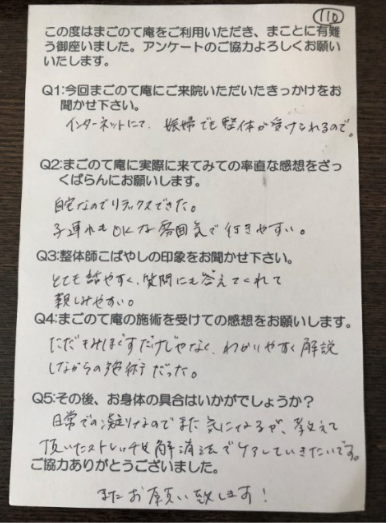 110
この度はまごのて庵をご利用いただき、まことに有難
う御座いました。アンケートのご協力よろしくお願い
いたします。
Q1:今回まごのて庵にご来院いただいたきっかけをお
聞かせ下さい。
インターネットにて、妊婦でも整体が受けれるので。
Q2:まごのて庵に実際に来てみての率直な感想をざっ
くばらんにお願いします。
自宅なのでリラックスできた。
子連れもOKな雰囲気で行きやすい。
Q3:整体師こばやしの印象をお聞かせ下さい。
とても話やすく、質問にも答えてくれて
親しみやすい。
Q4:まごのて庵の施術を受けての感想をお願いします。
ただもみほぐすだけじゃなく、わかりやすく解説
しながらの施術だった。
Q5:その後、お身体の具合はいかがでしょうか?
日常での凝りなのでまた気になるが、教えて
頂いたストレッチや解消法でケアしていきたいです。
ご協力ありがとうございました。
またお願い致します!